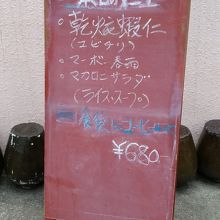 ・乾焼蝦仁
(エビチリ)
・マーボー春雨
・マカロニサラダ
(ライス・スープ)
食後にコーヒー
¥680-